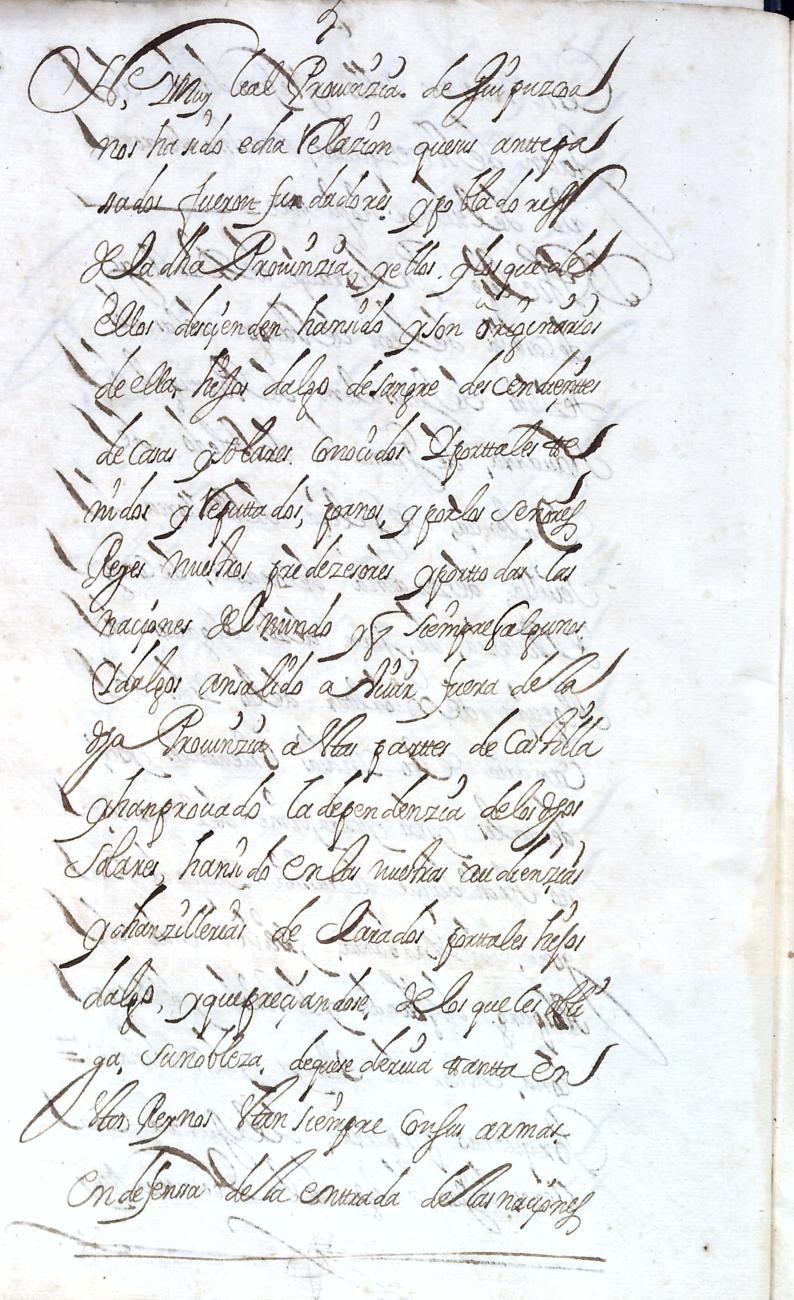 2
N.e Muy leal Provinzia de Guipuzcoa
nos ha sido echa Relazion que sus anttepa
sados fueron fundadores y pobladores
de la dha Provinzia, y ellos. y los que de
ellos desçienden han sido y son originarios
de ella, hijos dalgo de sangre descendienttes
de casas y solares. conocidos y por ttales tte
nidos y Reputtados, por nos, y por los Señores
Reyes nuestros predezesores y por ttodas las
naçiones del mundo y q siempre q algunos
dellos an salido a vivir fuera de la
dha Provinzia a otras parttes de Castilla
y han provado la dependenzia de los dhos
solares, han sido en las nuestras audienzias
y chanzillerias de clarados por ttales hijos
dalgo, y que preçiandose, de los que les obli
ga, su nobleza, de que se deriva ttantta en
esttos Reynos esttan siempre con sus armas
en defensa de la enttrada de las naçiones